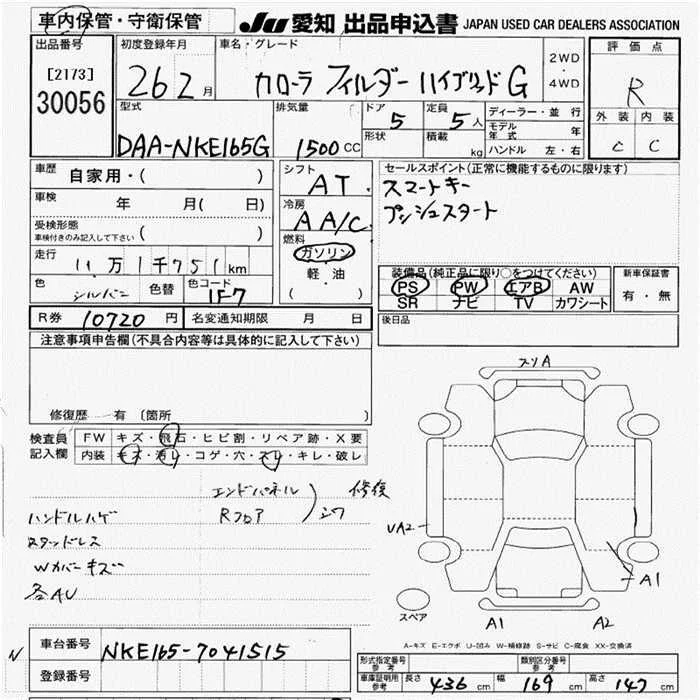 車内保管・守衛保管
JU 愛知 出品申込書 JAPAN USED CAR DEALERS ASSOCIATION
出品番号 初度登録年月 車名・グレード 2WD・4WD 評価点
[2173]
30056
26 2月 カローラ フィルダー ハイブリッド G R
型式 排気量 ドア 定員 ディーラー・並行 外装 内装
DAA-NKE165G 1500CC 5 5人 モデル年式 年 C C
形状 積載 kg ハンドル 左・右
車歴 自家用・( ) シフト AT セールスポイント(正常に機能するものに限ります)
スマートキー
プッシュスタート
車検 年 月( 日) 冷房 AA/C
受検形態 車検付きのみ記入して下さい ( ) 燃料 ガソリン
軽・油
( )
走行 11万1千751km
色 シルバー 色替 色コード 1F7
装備品(純正品に限り○をつけてください) 新車保証書
PS PW エアB AW 有・無
SR ナビ TV カワシート
R券 10720円 名変通知期限 月 日 後日品
注意事項申告欄(不具合内容等は具体的に記入して下さい)
修復歴 有 〔箇所 〕
検査員記入欄 FW キズ・飛石・ヒビ割・リペア跡・X要
内装 キズ・汚レ・コゲ・穴・スレ・キレ・破レ
エンドパネル 修復
Rフロア シワ
ハンドルハゲ
スタッドレス
Wカバーキズ
各AU
スリA
UA2
A1
スペア A1 A2
A-キズ E-エクボ U-凹み W-補修跡 S-サビ C-腐食 XX-交換済
N 車台番号 NKE165-7041515
登録番号
形式指定番号 参考 類別区分番号 参考
車庫証明用 参考 長さ 436cm 幅 169cm 高さ 147cm